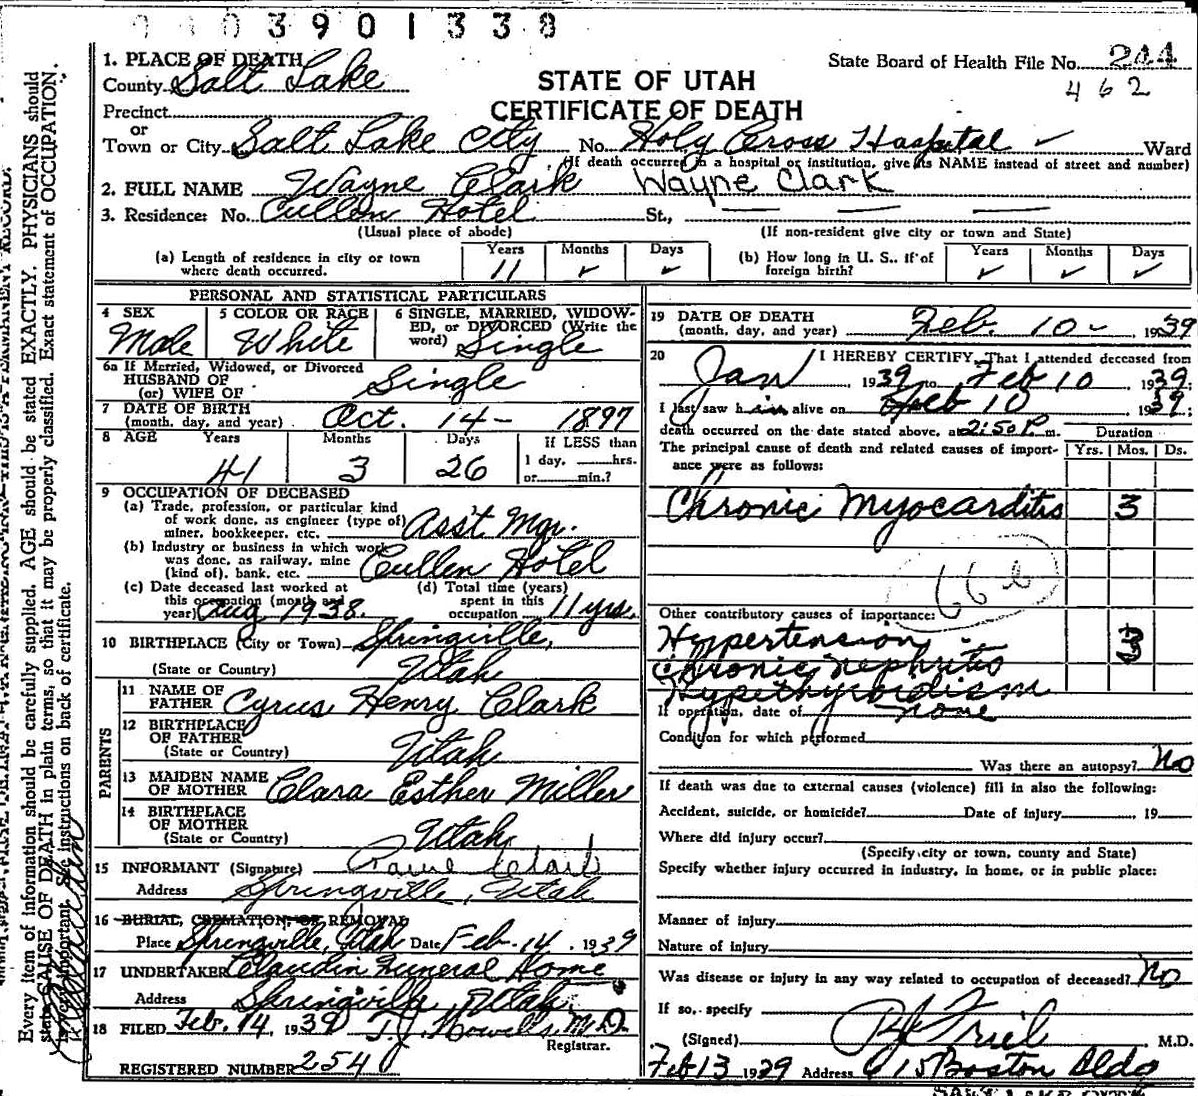 3901338
1. PLACE OF DEATH
County Salt Lake
STATE OF UTAH
CERTIFICATE OF DEATH
State Board of Health File No. 244
462
Precinct
or
Town or City Salt Lake City No. Holy Cross Hospital Ward
(If death occurred in a hospital or institution, give its NAME instead of street and number)
2. FULL NAME Wayne Clark Wayne Clark
3. Residence: No. Cullen Hotel St.,
(Usual place of abode) (If non-resident give city or town and State)
(a) Length of residence in city or town where death occurred. Years 11 Months ✓ Days ✓
(b) How long in U. S., if of foreign birth? Years ✓ Months ✓ Days ✓
PERSONAL AND STATISTICAL PARTICULARS
4 SEX Male
5 COLOR OR RACE White
6 SINGLE, MARRIED, WIDOWED, or DIVORCED (Write the word) Single
6a If Married, Widowed, or Divorced
HUSBAND OF
(or) WIFE OF Single
7 DATE OF BIRTH
(month, day, and year) Oct. 14 - 1897
8 AGE Years Months Days If LESS than
41 3 26 1 day, hrs.
or min.?
9 OCCUPATION OF DECEASED
(a) Trade, profession, or particular kind
of work done, as engineer (type of)
miner, bookkeeper, etc. Asst. Mgr.
(b) Industry or business in which work
was done, as railway, mine
(kind of), bank, etc. Cullen Hotel
(c) Date deceased last worked at
this occupation (month and
year) Aug 1938.
(d) Total time (years)
spent in this
occupation 11 yrs.
10 BIRTHPLACE (City or Town) Springville,
(State or Country) Utah
PARENTS
11 NAME OF
FATHER Cyrus Henry Clark
12 BIRTHPLACE
OF FATHER
(State or Country) Utah
13 MAIDEN NAME
OF MOTHER Clara Esther Miller
14 BIRTHPLACE
OF MOTHER
(State or Country) Utah
15 INFORMANT (Signature) Clark
Address Springville, Utah
16 BURIAL, CREMATION, OR REMOVAL
Place Springville, Utah Date Feb. 14, 1939
17 UNDERTAKER Claudin Funeral Home
Address Springville, Utah
18 FILED Feb. 14, 1939 T. J. Howells, M.D.
Registrar.
REGISTERED NUMBER 254
19 DATE OF DEATH
(month, day, and year) Feb. 10 - 1939
20 I HEREBY CERTIFY, That I attended deceased from
Jan 1939 to Feb 10 1939;
I last saw him alive on Feb 10 1939;
death occurred on the date stated above, at 2:50 P. m.
The principal cause of death and related causes of importance were as follows:
Duration
Yrs. Mos. Ds.
Chronic Myocarditis 3
66 b
Other contributory causes of importance:
Hypertension 3
Chronic Nephritis
Hypethyroidism
If operation, date of none
Condition for which performed
Was there an autopsy? No
If death was due to external causes (violence) fill in also the following:
Accident, suicide, or homicide? Date of injury , 19
Where did injury occur?
(Specify city or town, county and State)
Specify whether injury occurred in industry, in home, or in public place:
Manner of injury
Nature of injury
Was disease or injury in any way related to occupation of deceased? No
If so, specify
(Signed) Friel M.D.
Feb 13 1939 Address 615 Boston Bldg
Every item of information should be carefully supplied. AGE should be stated EXACTLY. PHYSICIANS should
state CAUSE OF DEATH in plain terms, so that it may be properly classified. Exact statement of OCCUPATION
is very important. See instructions on back of certificate.